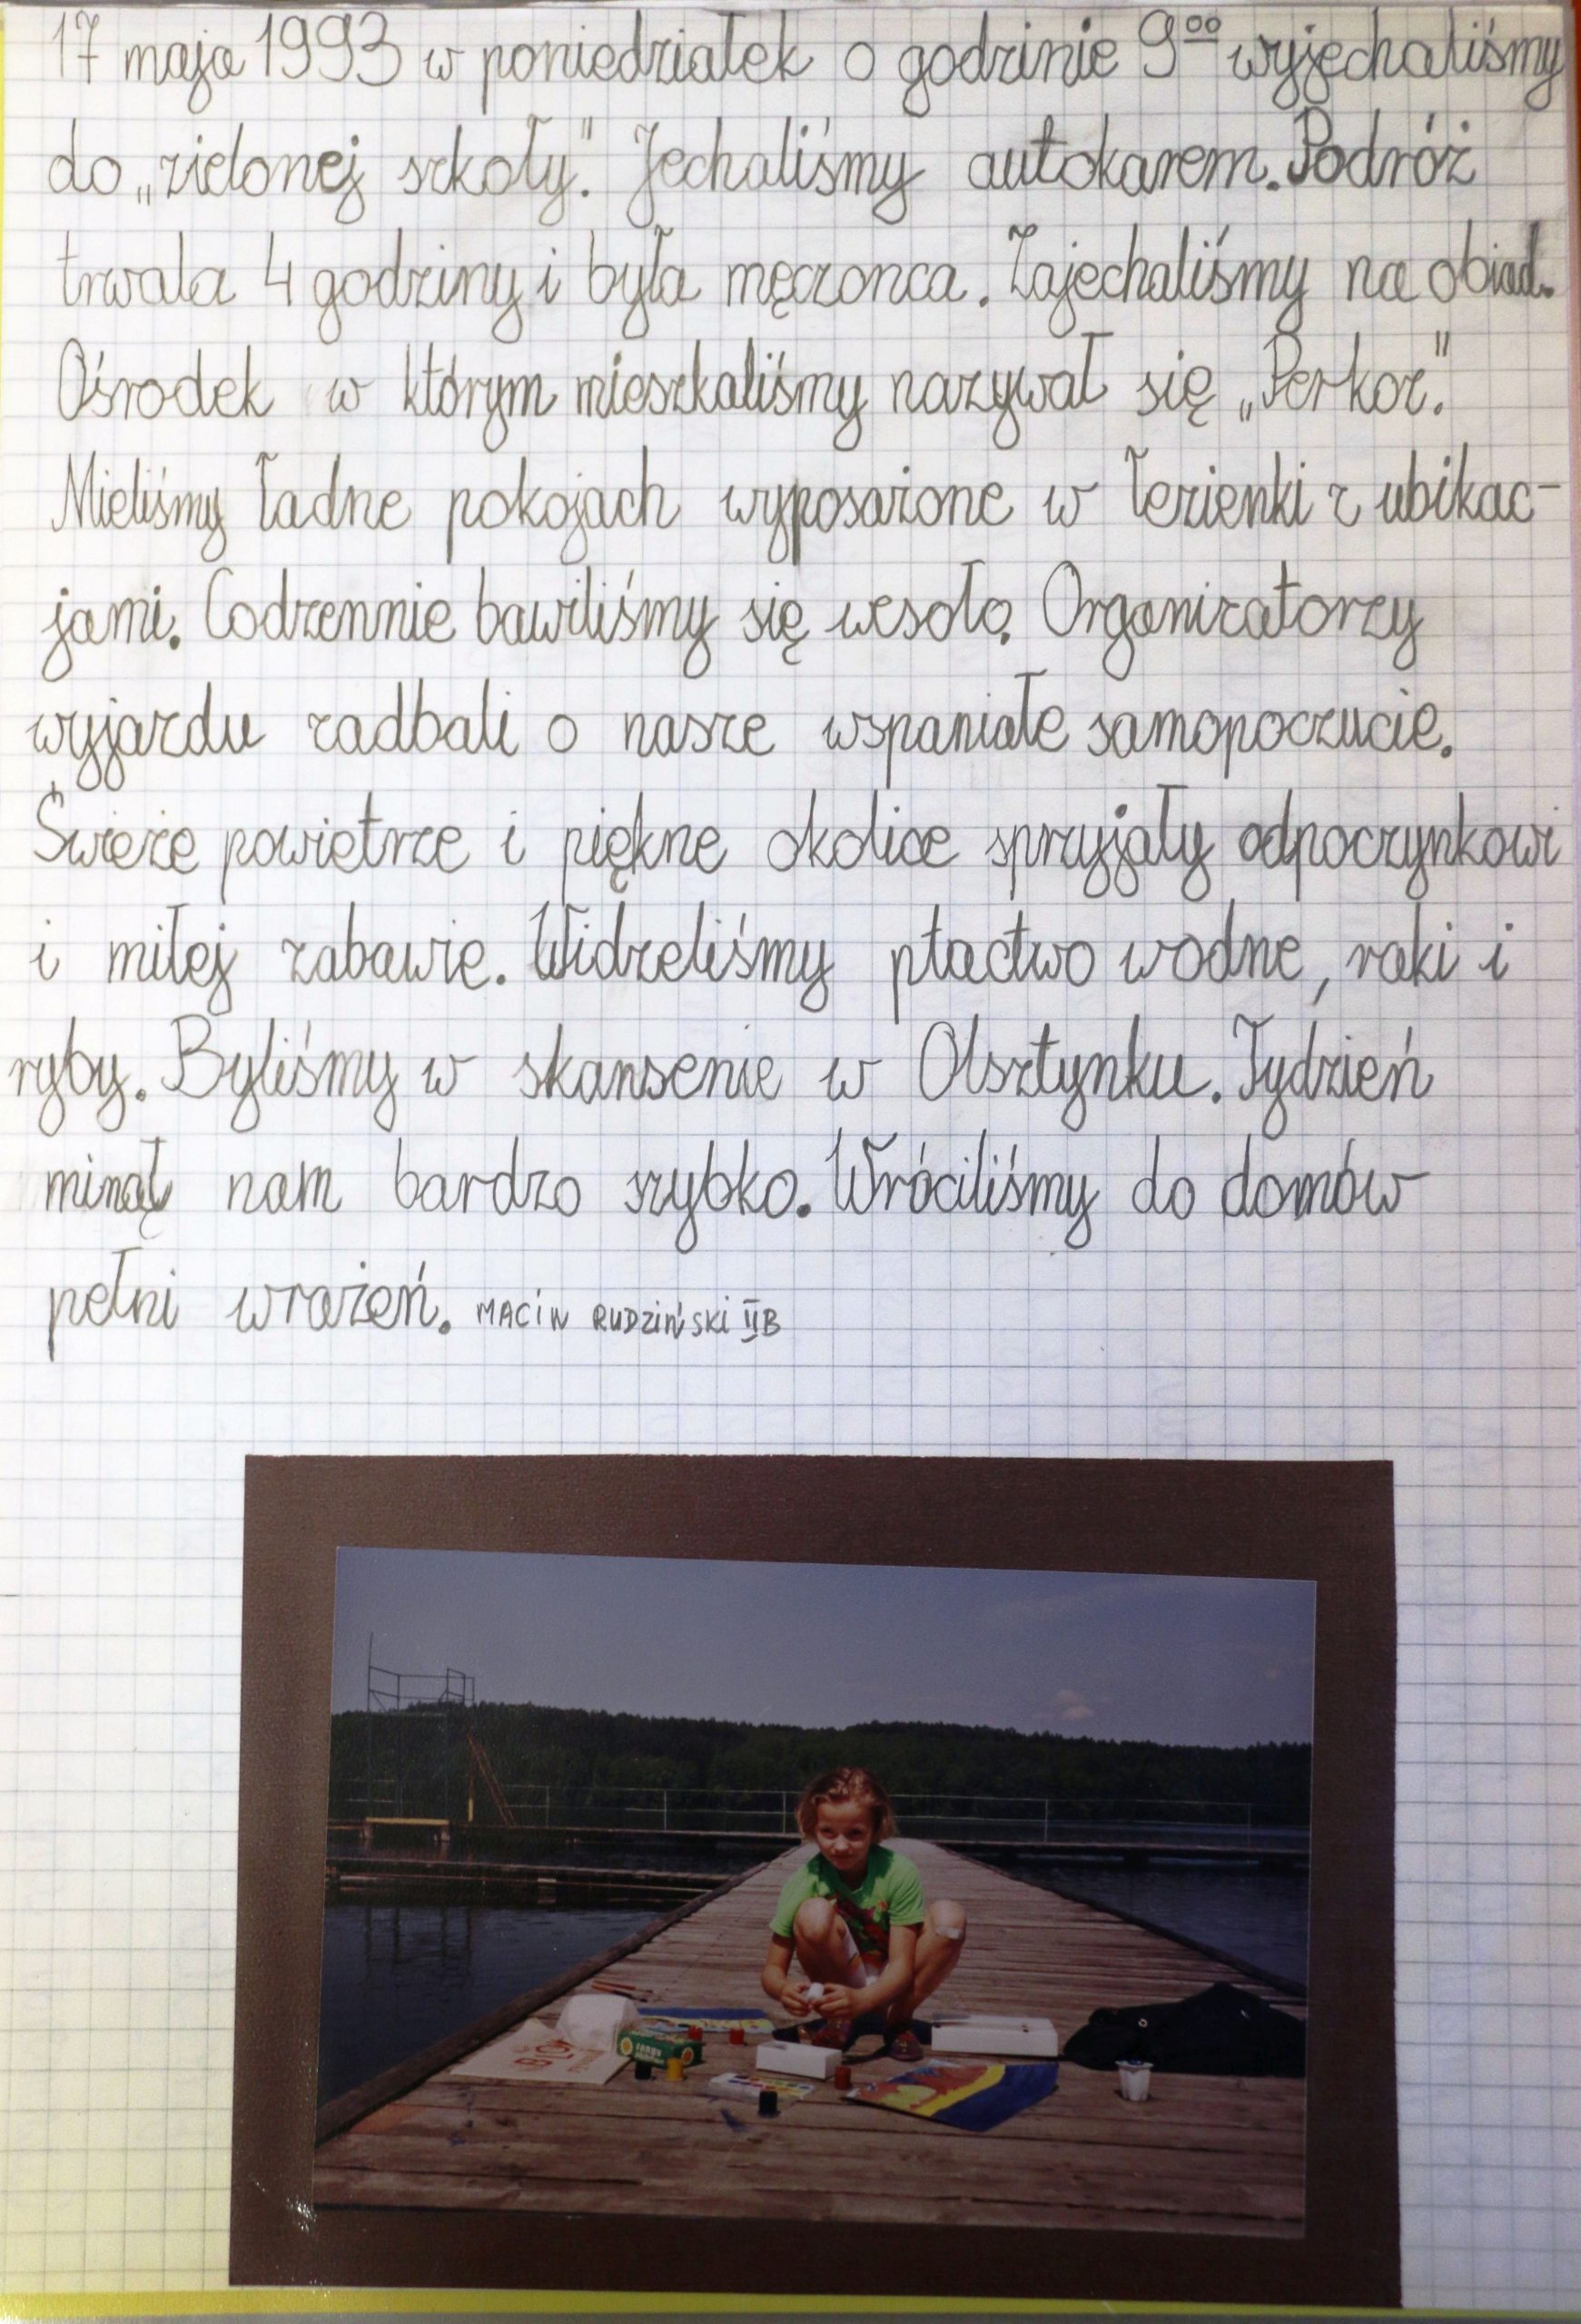 17 maja 1993 w poniedziałek o godzinie 9⁰⁰ wyjechaliśmy
do „zielonej szkoły”. Jechaliśmy autokarem. Podróż
trwała 4 godziny i była męczonca. Zajechaliśmy na obiad.
Ośrodek w którym mieszkaliśmy nazywał się „Perkoz”.
Mieliśmy ładne pokojach wyposażone w łezienki z ubikac-
jami. Codzennie bawiliśmy się wesoło. Organizatorzy
wyjazdu zadbali o nasze wspaniałe samopoczucie.
Świeże powietrze i piękne okolice sprzyjały odpoczynkowi
i miłej zabawie. Widzeliśmy ptactwo wodne, raki i
ryby. Byliśmy w skansenie w Olsztynku. Tydzień
minął nam bardzo szybko. Wróciliśmy do domów
pełni wrażeń. MACIN RUDZIŃSKI IIB
BLOK
FARBY